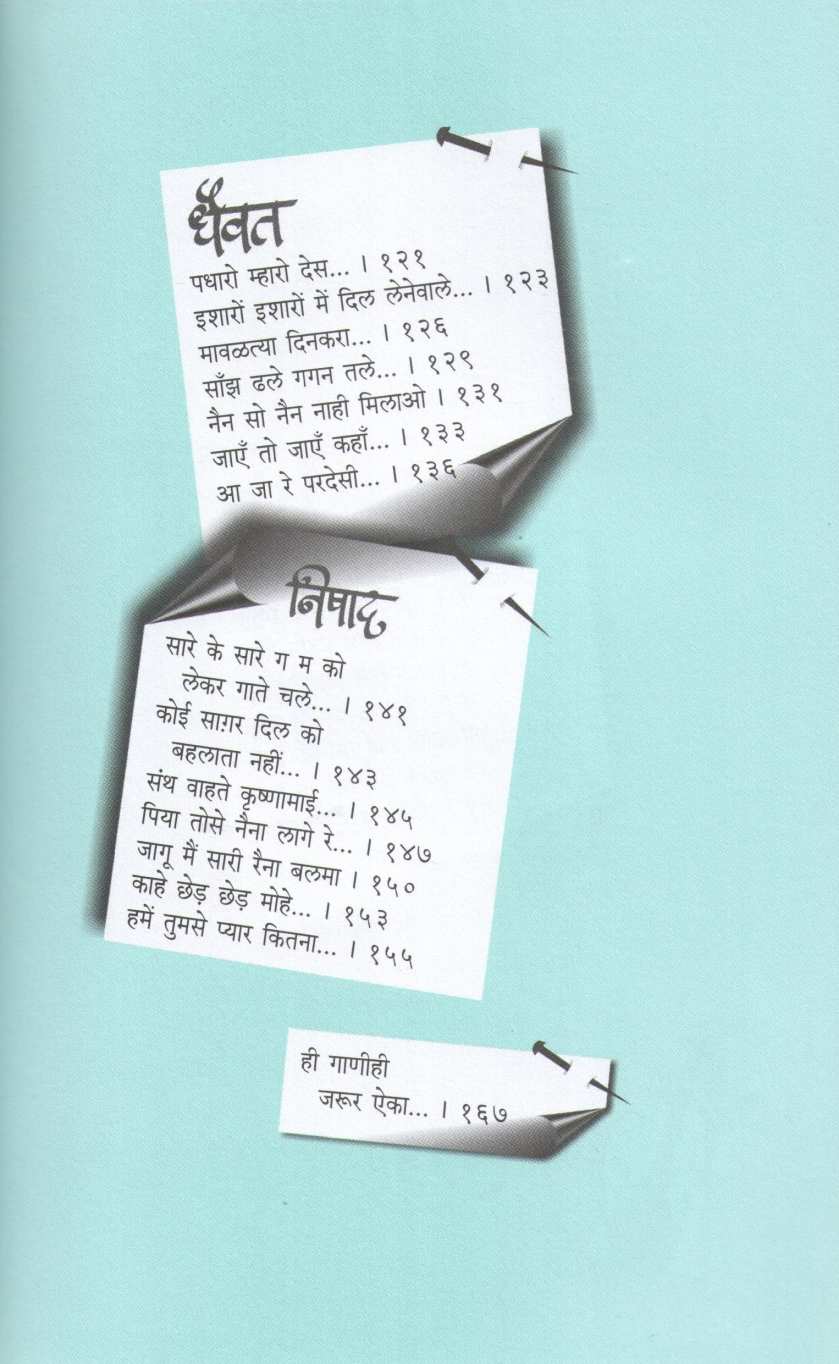 धैवत
पधारो म्हारो देस... । १२१
इशारों इशारों में दिल लेनेवाले... । १२३
मावळत्या दिनकरा... । १२६
साँझ ढले गगन तले... । १२९
नैन सो नैन नाही मिलाओ । १३१
जाएँ तो जाएँ कहाँ... । १३३
आ जा रे परदेसी... । १३६
निषाद
सारे के सारे ग म को
लेकर गाते चले... । १४१
कोई साग़र दिल को
बहलाता नहीं... । १४३
संथ वाहते कृष्णामाई... । १४५
पिया तोसे नैना लागे रे... । १४७
जागू मैं सारी रैना बलमा । १५०
काहे छेड़ छेड़ मोहे... । १५३
हमें तुमसे प्यार कितना... । १५५
ही गाणीही
जरूर ऐका... । १६७